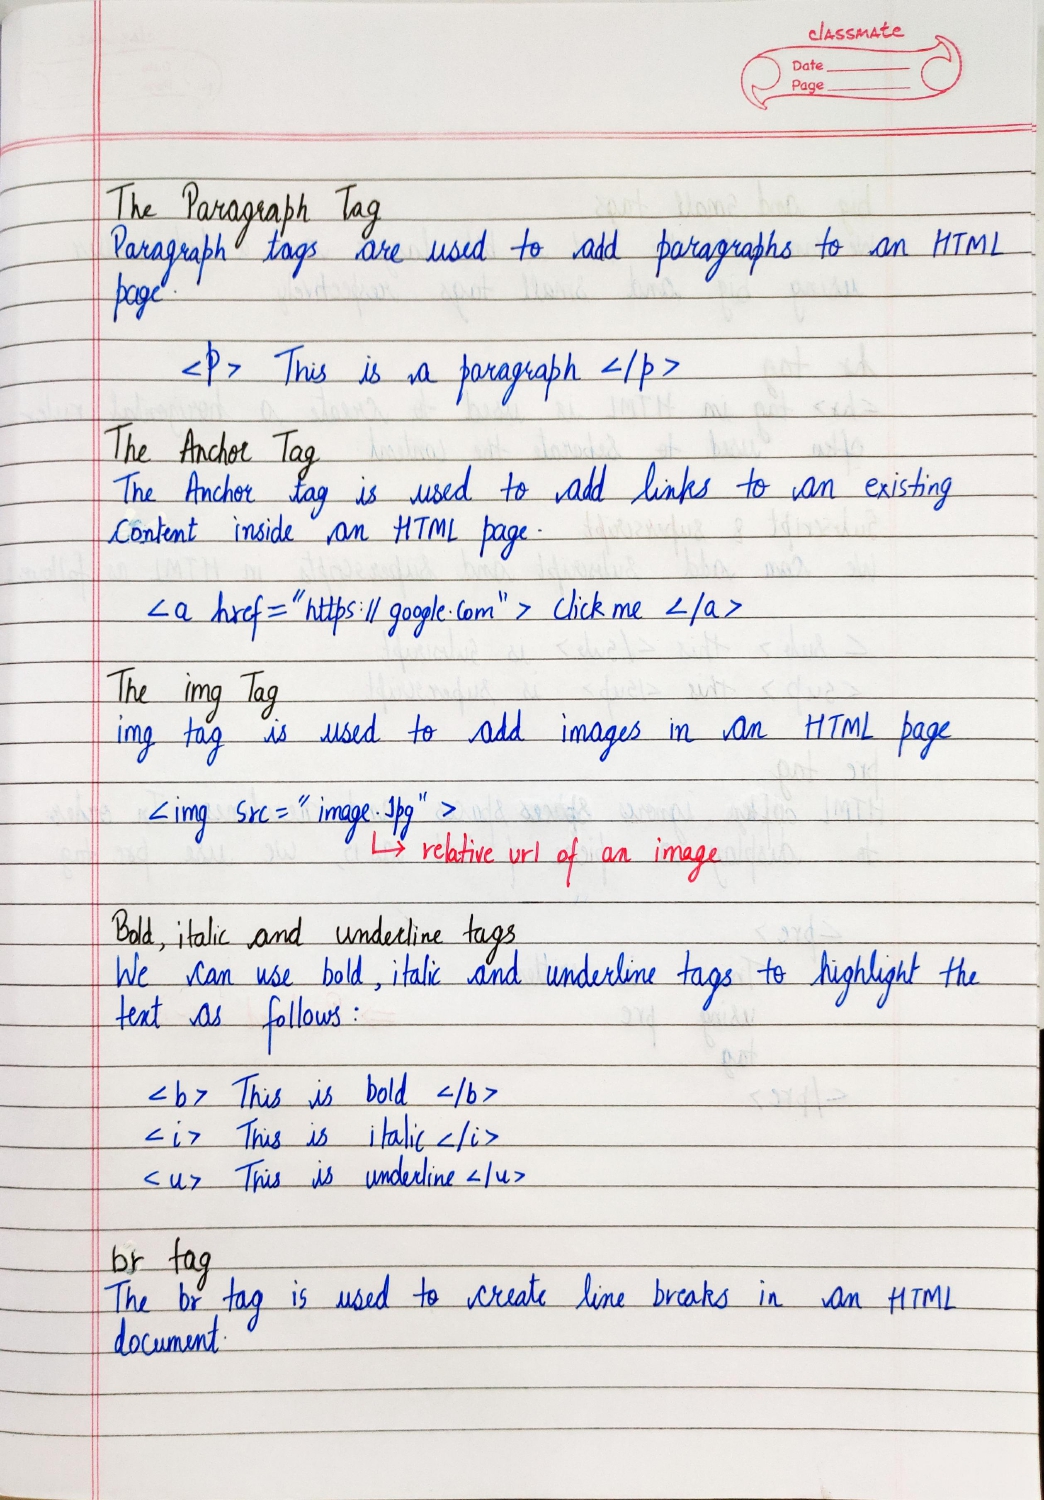 classmate
Date
Page
The Paragraph Tag
Paragraph tags are used to add paragraphs to an HTML
page.
<P> This is a paragraph </p>
The Anchor Tag
The Anchor tag is used to add links to an existing
content inside an HTML page.
<a href="https://google.com"> Click me </a>
The img Tag
img tag is used to add images in an HTML page
<img src="image.jpg">
↳ relative url of an image
Bold, italic and underline tags
We can use bold, italic and underline tags to highlight the
text as follows:
<b> This is bold </b>
<i> This is italic </i>
<u> This is underline </u>
br tag
The br tag is used to create line breaks in an HTML
document.